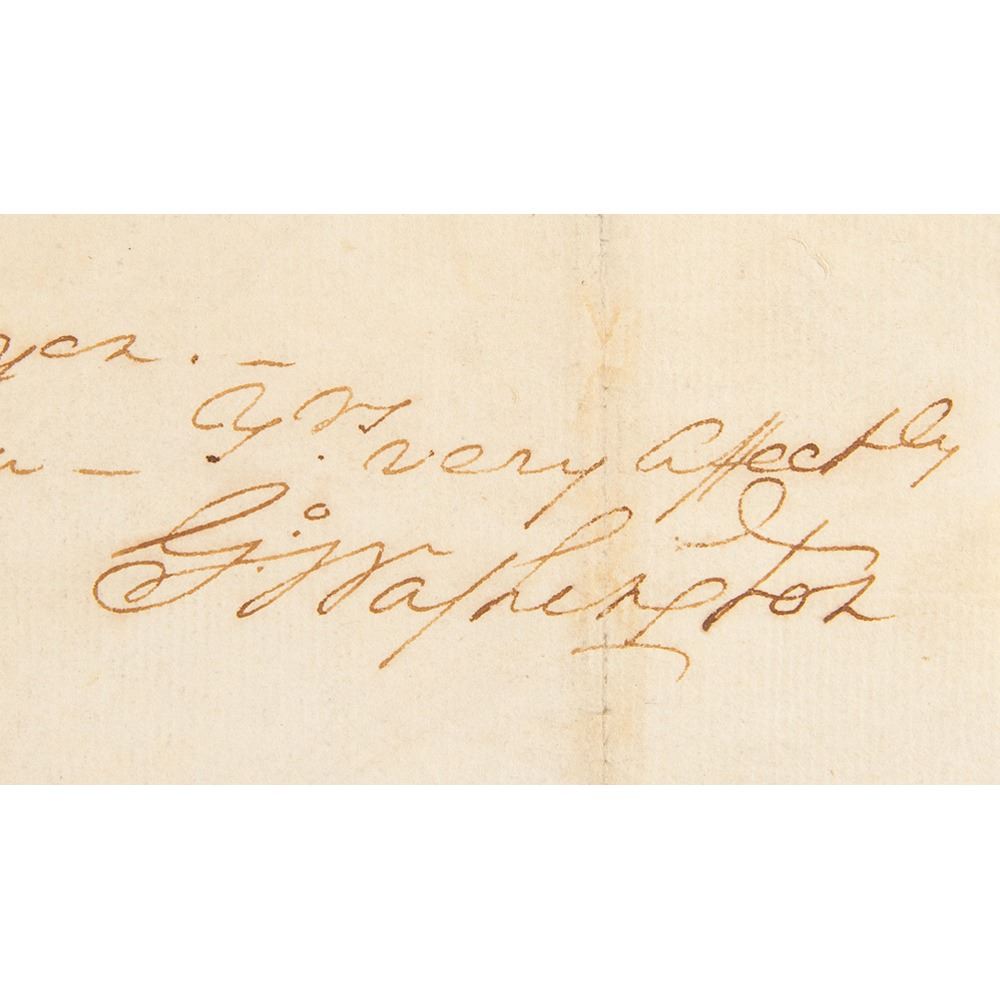 y^rs. very affectly
G:° Washington